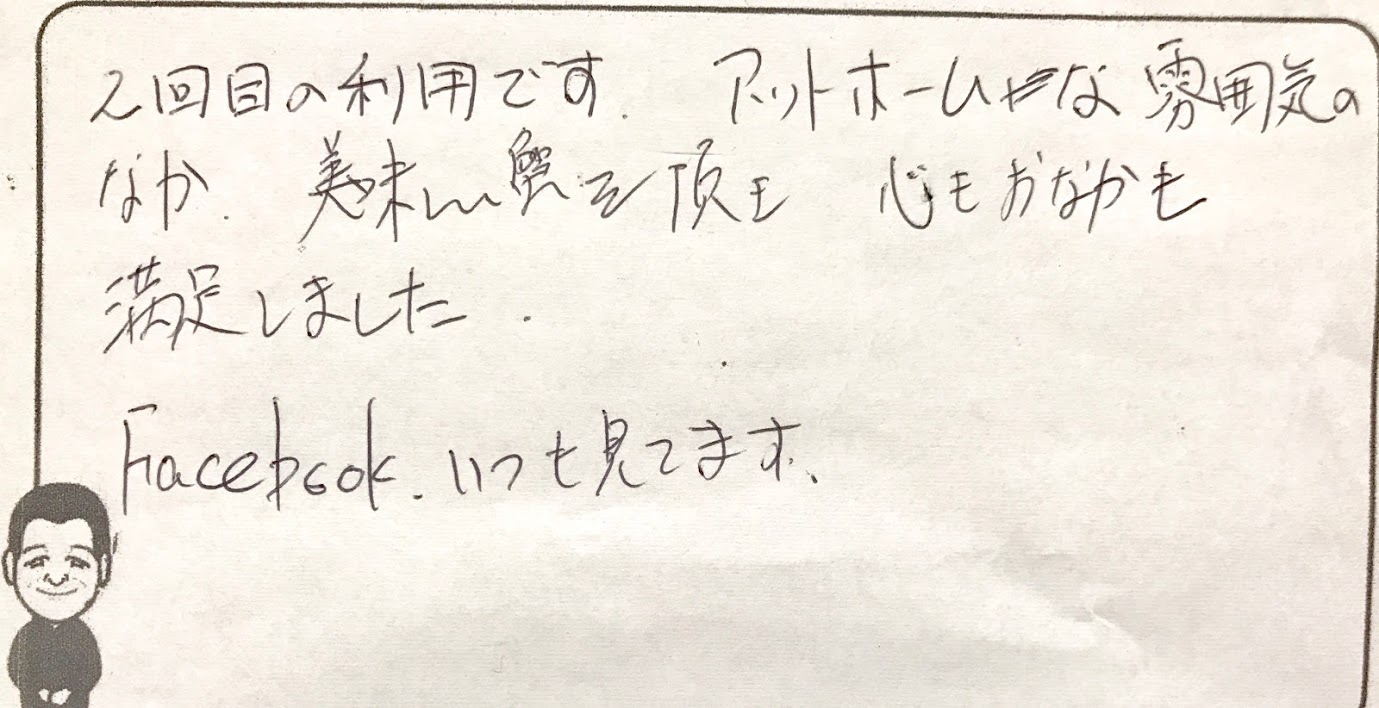 2回目の利用です. アットホームな雰囲気の
なか. 美味しい蟹を頂き 心もおなかも
満足しました.
Facebook. いつも見てます、